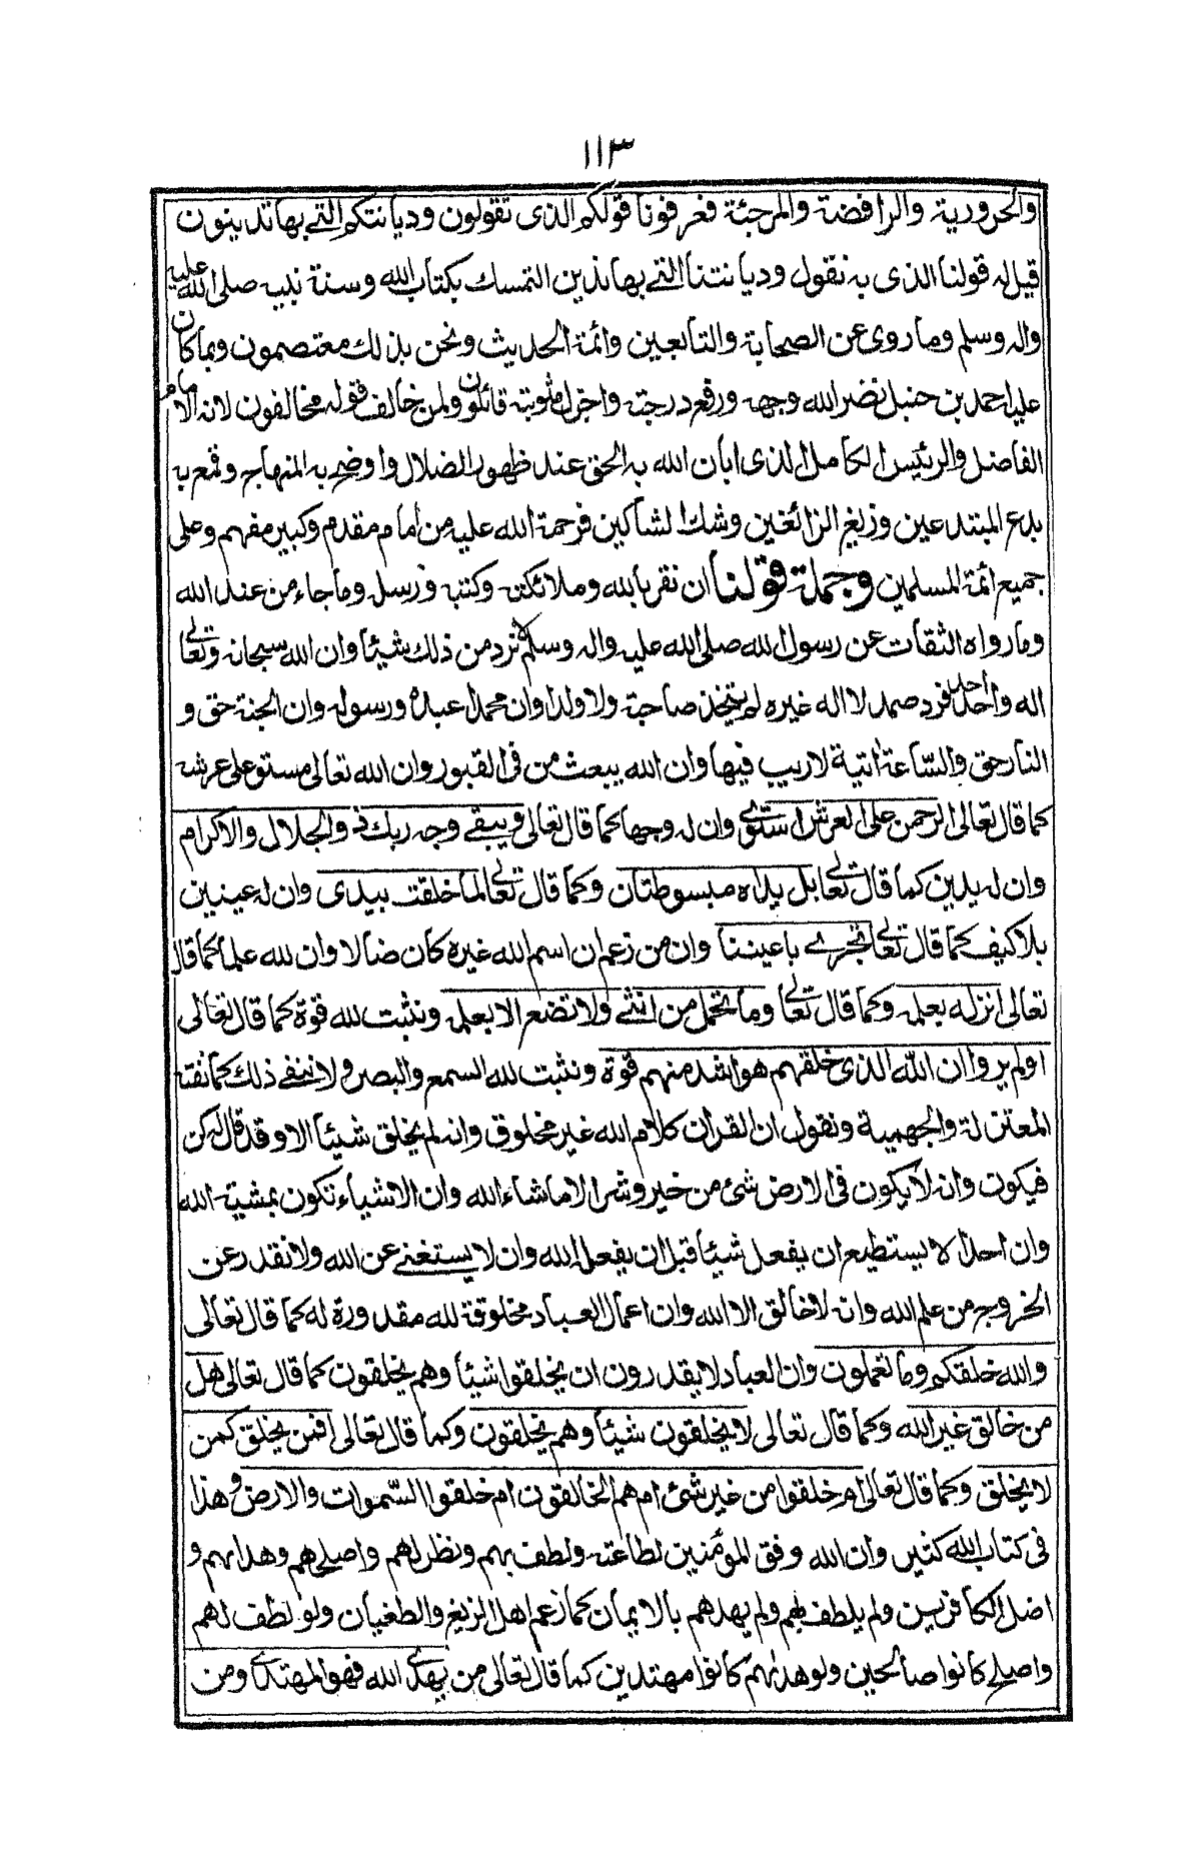 ١١٣
والحرورية والرافضة والمرجئة فعرفونا قولكم الذى تقولون وديانتكم التے بها تدينون
قيل له قولنا الذى به نقول وديانتنا التے بها ندين التمسك بكتاب الله وسنة نبيه صلى الله عليه
واله وسلم وما روى عن الصحابة والتابعين وائمة الحديث ونحن بذلك معتصمون وبما كان
عليه احمد بن حنبل نضر الله وجهه ورفع درجته واجزل مثوبته قائلون ولمن خالف قوله مخالفون لانه الامام
الفاضل والرئيس الكامل الذى ابان الله به الحق عند ظهور الضلال واوضح به المنهاج وقمع به
بدع المبتدعين وزيغ الزائغين وشك الشاكين فرحمة الله عليه من امام مقدم وكبير مفهم وعلى
جميع ائمة المسلمين وجملة قولنا ان نقر بالله وملائكته وكتبه ورسله وما جاء من عند الله
وما رواه الثقات عن رسول الله صلى الله عليه واله وسلم لا نرد من ذلك شيئا وان الله سبحانه وتعالى
اله واحد فرد صمد لا اله غيره لم يتخذ صاحبة ولا ولدا وان محمدا عبده ورسوله وان الجنة حق و
النار حق والسّاعة اتية لا ريب فيها وان الله يبعث من فى القبور وان الله تعالى مستو على عرشه
كما قال تعالى الرحمن على العرش استوى وان له وجها كما قال تعالى ويبقے وجه ربك ذو الجلال والاكرام
وان له يدين كما قال تعالى بل يداه مبسوطتان وكما قال تعالى لما خلقت بيدى وان له عينين
بلا كيف كما قال تعالى تجرے باعيننا وان من زعم ان اسم الله غيره كان ضالا وان لله علما كما قال
تعالى انزله بعلمه وكما قال تعالى وما تحمل من انثے ولا تضع الا بعلمه ونثبت لله قوة كما قال تعالى
اولم يروا ان الله الذى خلقهم هو اشد منهم قوة ونثبت لله السمع والبصر ولا ننفے ذلك كما نفته
المعتزلة والجهمية ونقول ان القران كلام الله غير مخلوق وانه لم يخلق شيئا الا وقد قال له كن
فيكون وانه لا يكون فى الارض شئ من خير وشر الا ما شاء الله وان الاشياء تكون بمشية الله
وان احدا لا يستطيع ان يفعل شيئا قبل ان يفعل الله وان لا يستغنے عن الله ولا نقدر عن
الخروج من علم الله وانه لا خالق الا الله وان اعمال العباد مخلوقة لله مقدورة له كما قال تعالى
والله خلقكم وما تعملون وان العباد لا يقدرون ان يخلقوا شيئا وهم يخلقون كما قال تعالى هل
من خالق غير الله وكما قال تعالى لا يخلقون شيئا وهم يخلقون وكما قال تعالى افمن يخلق كمن
لا يخلق وكما قال تعالى ام خلقوا من غير شئ ام هم الخالقون ام خلقوا السّموات والارض وهذا
فى كتاب الله كثير وان الله وفق المؤمنين لطاعته ولطف بهم ونظر لهم واصلحهم وهداهم و
اضل الكافرين ولم يلطف بهم ولم يهدهم بالايمان كما زعم اهل الزيغ والطغيان ولو لطف لهم
واصلح كانوا صالحين ولو هداهم كانوا مهتدين كما قال تعالى من يهدى الله فهو المهتدى ومن